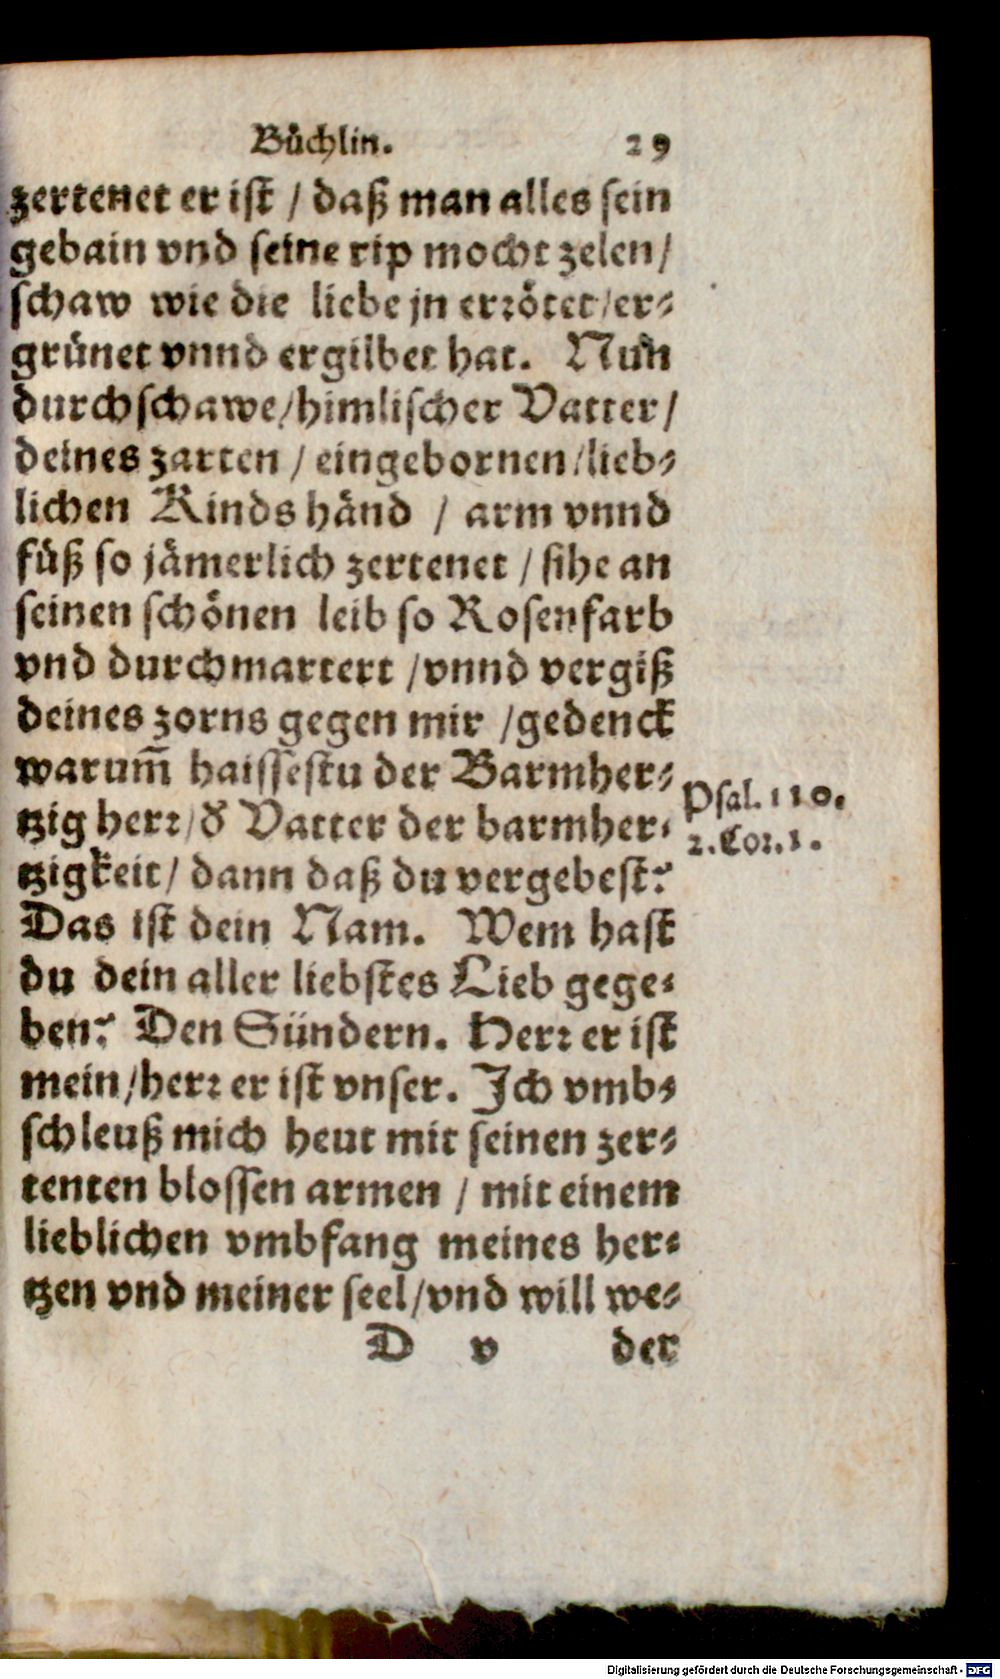 Büchlin. 29
zertenet er ist / daß man alles sein
gebain vnd seine rip mocht zelen /
schaw wie die liebe jn errötet / er-
grünet vnnd ergilbet hat. Nun
durchschawe / himlischer Vatter /
deines zarten / eingebornen / lieb-
lichen Kinds händ / arm vnnd
füß so jämerlich zertenet / sihe an
seinen schönen leib so Rosenfarb
vnd durchmartert / vnnd vergiß
deines zorns gegen mir / gedenck
warum̃ haissestu der Barmher-
tzig herr / d' Vatter der barmher-
tzigkeit / dann daß du vergebest?
Das ist dein Nam. Wem hast
du dein aller liebstes Lieb gege-
ben? Den Sündern. Herr er ist
mein / herr er ist vnser. Ich vmb-
schleuß mich heut mit seinen zer-
tenten blossen armen / mit einem
lieblichen vmbfang meines her-
tzen vnd meiner seel / vnd will we-
D v der
Psal. 110.
2. Cor. 1.
Digitalisierung gefördert durch die Deutsche Forschungsgemeinschaft - DFG